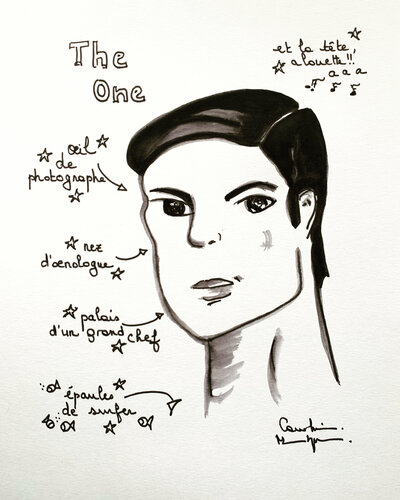 The
One
et la tête,
alouette!!
a a a
œil
de
photographe
nez
d'œnologue
palais
d'un grand chef
épaules
de surfer